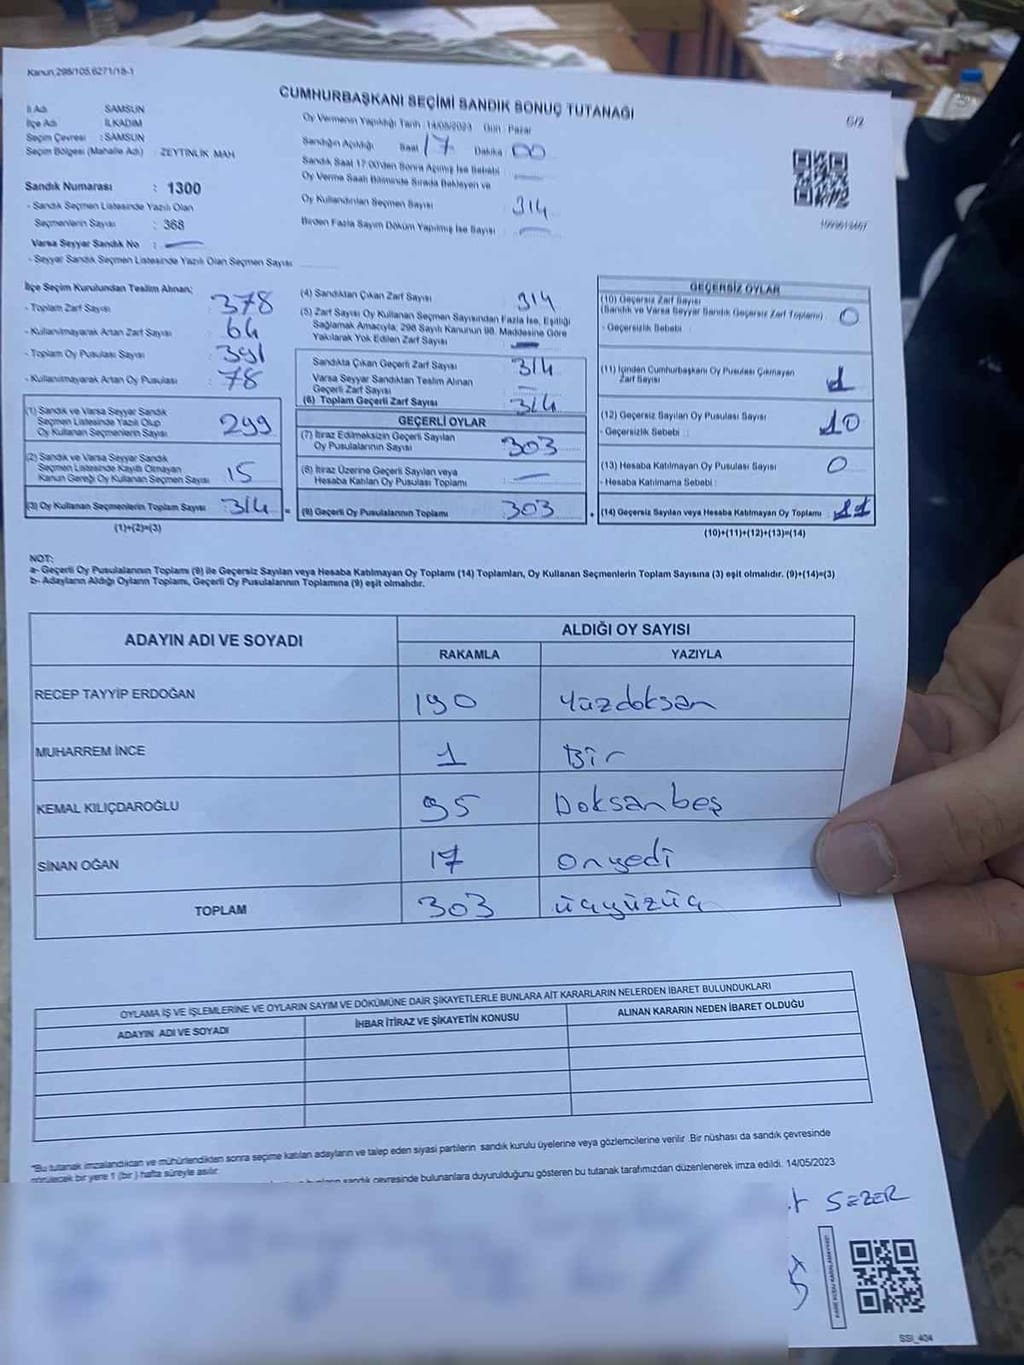 Kanun,298/105,6271/18-1
CUMHURBAŞKANI SEÇİMİ SANDIK SONUÇ TUTANAĞI
6/2
İl Adı SAMSUN
İlçe Adı İLKADIM
Seçim Çevresi : SAMSUN
Seçim Bölgesi (Mahalle Adı) ZEYTİNLİK MAH
Oy Vermenin Yapıldığı Tarih :14/05/2023 Gün : Pazar
Sandığın Açıldığı Saat 17 Dakika 00
Sandık Saat 17:00'den Sonra Açılmış İse Sebebi :
Oy Verme Saati Bitiminde Sırada Bekleyen ve
Oy Kullandırılan Seçmen Sayısı 314
Birden Fazla Sayım Döküm Yapılmış İse Sayısı
Sandık Numarası : 1300
- Sandık Seçmen Listesinde Yazılı Olan
Seçmenlerin Sayısı : 368
Varsa Seyyar Sandık No :
- Seyyar Sandık Seçmen Listesinde Yazılı Olan Seçmen Sayısı
İlçe Seçim Kurulundan Teslim Alınan;
- Toplam Zarf Sayısı 378
- Kullanılmayarak Artan Zarf Sayısı : 64
- Toplam Oy Pusulası Sayısı 391
- Kullanılmayarak Artan Oy Pusulası : 78
(1) Sandık ve Varsa Seyyar Sandık
Seçmen Listesinde Yazılı Olup
Oy Kullanan Seçmenlerin Sayısı 299
(2) Sandık ve Varsa Seyyar Sandık
Seçmen Listesinde Kayıtlı Olmayan
Kanun Gereği Oy Kullanan Seçmen Sayısı 15
(3) Oy Kullanan Seçmenlerin Toplam Sayısı : 314 =
(1)+(2)=(3)
(4) Sandıktan Çıkan Zarf Sayısı 314
(5) Zarf Sayısı Oy Kullanan Seçmen Sayısından Fazla İse, Eşitliği
Sağlamak Amacıyla; 298 Sayılı Kanunun 98. Maddesine Göre
Yakılarak Yok Edilen Zarf Sayısı
Sandıkta Çıkan Geçerli Zarf Sayısı 314
Varsa Seyyar Sandıktan Teslim Alınan
Geçerli Zarf Sayısı
(6) Toplam Geçerli Zarf Sayısı 314
GEÇERLİ OYLAR
(7) İtiraz Edilmeksizin Geçerli Sayılan
Oy Pusulalarının Sayısı 303
(8) İtiraz Üzerine Geçerli Sayılan veya
Hesaba Katılan Oy Pusulası Toplamı
(9) Geçerli Oy Pusulalarının Toplamı 303 +
GEÇERSİZ OYLAR
(10) Geçersiz Zarf Sayısı
(Sandık ve Varsa Seyyar Sandık Geçersiz Zarf Toplamı) : 0
- Geçersizlik Sebebi :
(11) İçinden Cumhurbaşkanı Oy Pusulası Çıkmayan
Zarf Sayısı 1
(12) Geçersiz Sayılan Oy Pusulası Sayısı 10
- Geçersizlik Sebebi :
(13) Hesaba Katılmayan Oy Pusulası Sayısı 0
- Hesaba Katılmama Sebebi :
(14) Geçersiz Sayılan veya Hesaba Katılmayan Oy Toplamı : 11
(10)+(11)+(12)+(13)=(14)
NOT:
a- Geçerli Oy Pusulalarının Toplamı (9) ile Geçersiz Sayılan veya Hesaba Katılmayan Oy Toplamı (14) Toplamları, Oy Kullanan Seçmenlerin Toplam Sayısına (3) eşit olmalıdır. (9)+(14)=(3)
b- Adayların Aldığı Oyların Toplamı, Geçerli Oy Pusulalarının Toplamına (9) eşit olmalıdır.
ADAYIN ADI VE SOYADI
ALDIĞI OY SAYISI
RAKAMLA YAZIYLA
RECEP TAYYİP ERDOĞAN 190 Yüzdoksan
MUHARREM İNCE 1 Bir
KEMAL KILIÇDAROĞLU 95 Doksanbeş
SİNAN OĞAN 17 Onyedi
TOPLAM 303 üçyüzüç
OYLAMA İŞ VE İŞLEMLERİNE VE OYLARIN SAYIM VE DÖKÜMÜNE DAİR ŞİKAYETLERLE BUNLARA AİT KARARLARIN NELERDEN İBARET BULUNDUKLARI
ADAYIN ADI VE SOYADI İHBAR İTİRAZ VE ŞİKAYETİN KONUSU ALINAN KARARIN NEDEN İBARET OLDUĞU
"Bu tutanak imzalandıktan ve mühürlendikten sonra seçime katılan adayların ve talep eden siyasi partilerin sandık kurulu üyelerine veya gözlemcilerine verilir .Bir nüshası da sandık çevresinde
görülecek bir yere 1 (bir ) hafta süreyle asılır.
sandık çevresinde bulunanlara duyurulduğunu gösteren bu tutanak tarafımızdan düzenlenerek imza edildi. 14/05/2023
SEZER
SSI_404